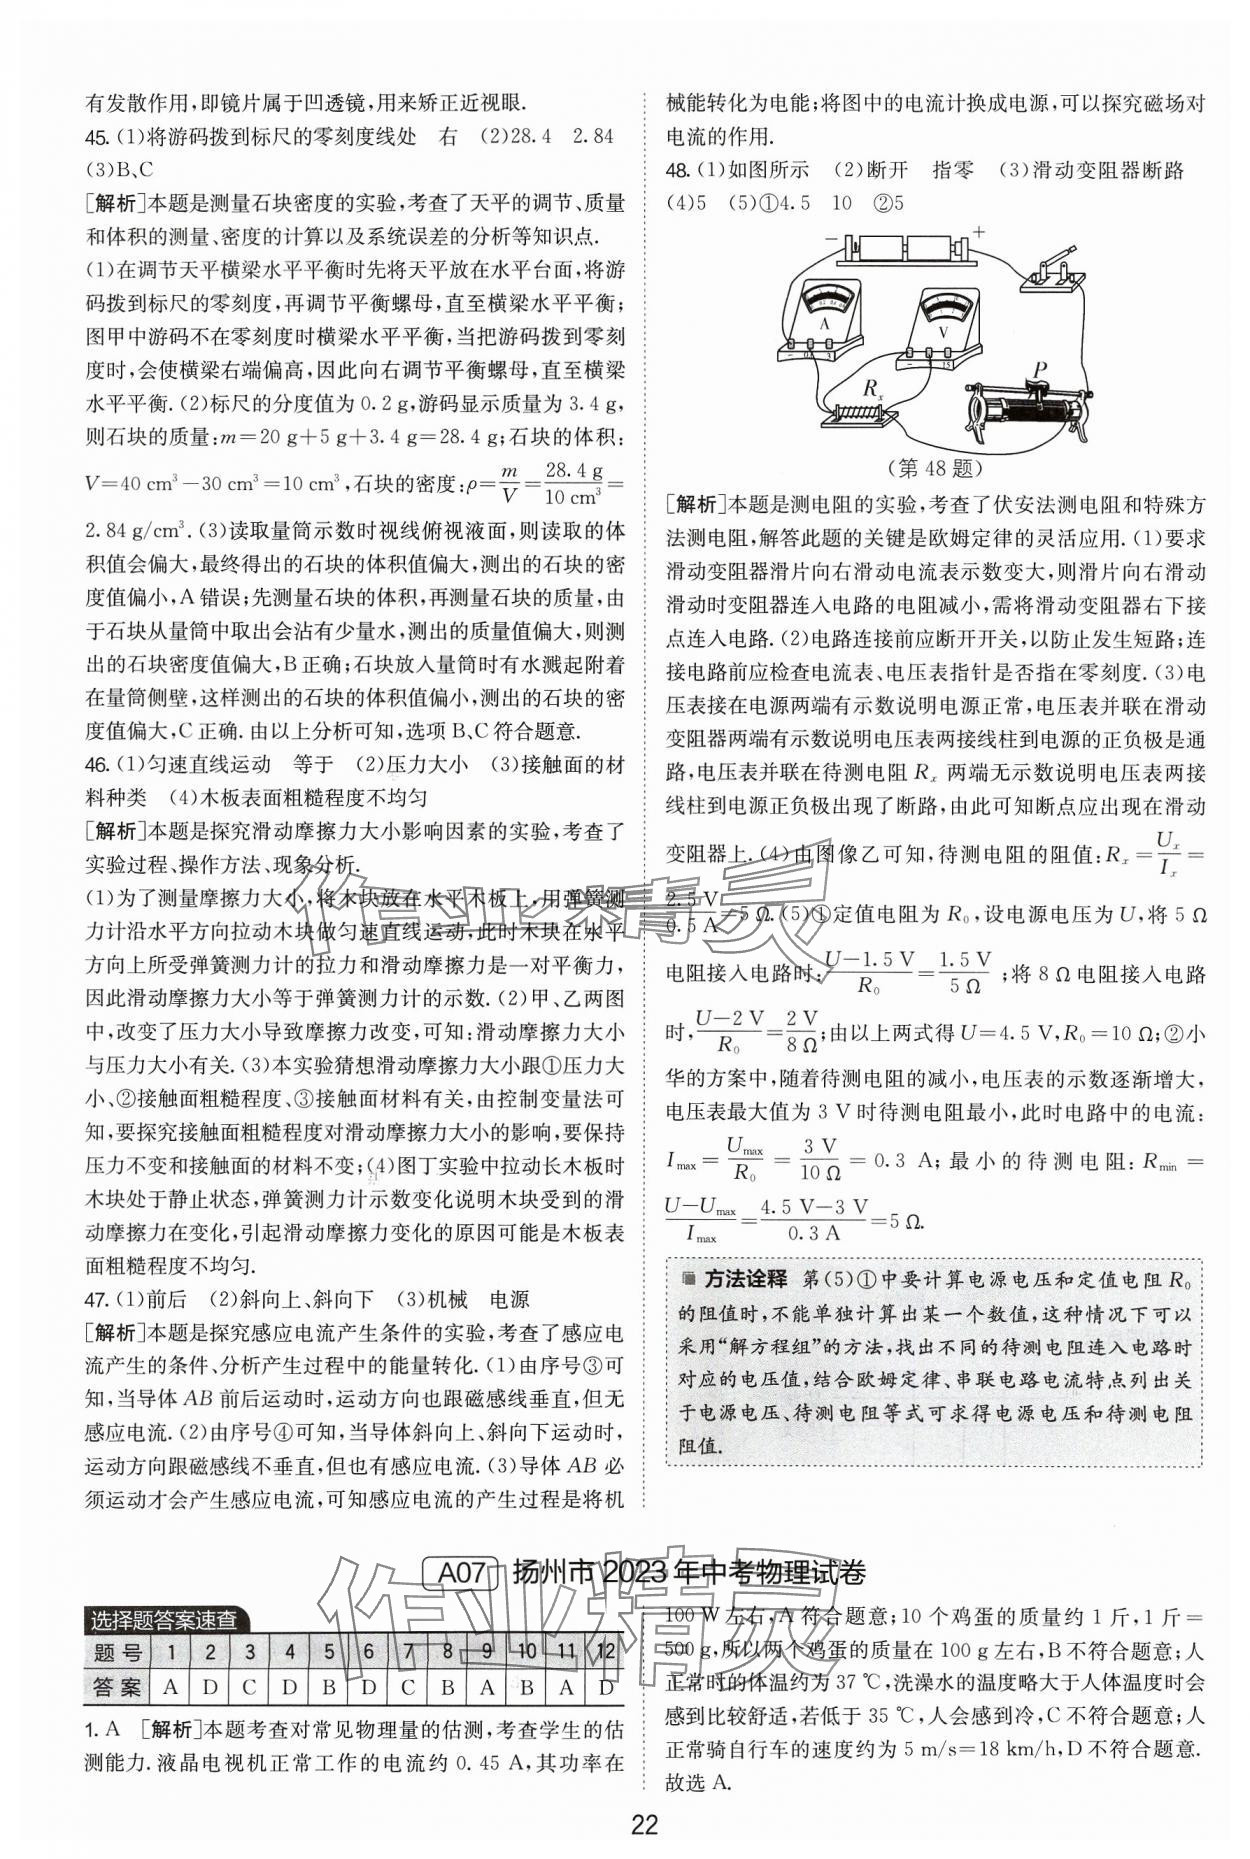 有发散作用,即镜片属于凹透镜,用来矫正近视眼.
45. (1)将游码拨到标尺的零刻度线处　右　(2)28.4　2.84
(3)B、C
[解析]本题是测量石块密度的实验,考查了天平的调节、质量
和体积的测量、密度的计算以及系统误差的分析等知识点.
(1)在调节天平横梁水平平衡时先将天平放在水平台面,将游
码拨到标尺的零刻度,再调节平衡螺母,直至横梁水平平衡;
图甲中游码不在零刻度时横梁水平平衡,当把游码拨到零刻
度时,会使横梁右端偏高,因此向右调节平衡螺母,直至横梁
水平平衡. (2)标尺的分度值为 0.2 g,游码显示质量为 3.4 g,
则石块的质量:m=20 g+5 g+3.4 g=28.4 g;石块的体积:
V=40 cm³-30 cm³=10 cm³,石块的密度:ρ=m/V=28.4 g/10 cm³=
2.84 g/cm³. (3)读取量筒示数时视线俯视液面,则读取的体
积值会偏大,最终得出的石块的体积值偏大,测出的石块的密
度值偏小,A 错误;先测量石块的体积,再测量石块的质量,由
于石块从量筒中取出会沾有少量水,测出的质量值偏大,则测
出的石块密度值偏大,B 正确;石块放入量筒时有水溅起附着
在量筒侧壁,这样测出的石块的体积值偏小,测出的石块的密
度值偏大,C 正确. 由以上分析可知,选项 B、C 符合题意.
46. (1)匀速直线运动　等于　(2)压力大小　(3)接触面的材
料种类　(4)木板表面粗糙程度不均匀
[解析]本题是探究滑动摩擦力大小影响因素的实验,考查了
实验过程、操作方法、现象分析.
(1)为了测量摩擦力大小,将木块放在水平木板上,用弹簧测
力计沿水平方向拉动木块做匀速直线运动,此时木块在水平
方向上所受弹簧测力计的拉力和滑动摩擦力是一对平衡力,
因此滑动摩擦力大小等于弹簧测力计的示数. (2)甲、乙两图
中,改变了压力大小导致摩擦力改变,可知:滑动摩擦力大小
与压力大小有关. (3)本实验猜想滑动摩擦力大小跟①压力大
小、②接触面粗糙程度、③接触面材料有关,由控制变量法可
知,要探究接触面粗糙程度对滑动摩擦力大小的影响,要保持
压力不变和接触面的材料不变;(4)图丁实验中拉动长木板时
木块处于静止状态,弹簧测力计示数变化说明木块受到的滑
动摩擦力在变化,引起滑动摩擦力变化的原因可能是木板表
面粗糙程度不均匀.
47. (1)前后　(2)斜向上、斜向下　(3)机械　电源
[解析]本题是探究感应电流产生条件的实验,考查了感应电
流产生的条件、分析产生过程中的能量转化. (1)由序号③可
知,当导体 AB 前后运动时,运动方向也跟磁感线垂直,但无
感应电流. (2)由序号④可知,当导体斜向上、斜向下运动时,
运动方向跟磁感线不垂直,但也有感应电流. (3)导体 AB 必
须运动才会产生感应电流,可知感应电流的产生过程是将机
械能转化为电能;将图中的电流计换成电源,可以探究磁场对
电流的作用.
48. (1)如图所示　(2)断开　指零　(3)滑动变阻器断路
(4)5　(5)①4.5　10　②5
−　+
A　V
− 0.6 3　15
Rₓ　P
(第 48 题)
[解析]本题是测电阻的实验,考查了伏安法测电阻和特殊方
法测电阻,解答此题的关键是欧姆定律的灵活应用. (1)要求
滑动变阻器滑片向右滑动电流表示数变大,则滑片向右滑动
滑动时变阻器连入电路的电阻减小,需将滑动变阻器右下接
点连入电路. (2)电路连接前应断开开关,以防止发生短路;连
接电路前应检查电流表、电压表指针是否指在零刻度. (3)电
压表接在电源两端有示数说明电源正常,电压表并联在滑动
变阻器两端有示数说明电压表两接线柱到电源的正负极是通
路,电压表并联在待测电阻 Rₓ 两端无示数说明电压表两接
线柱到电源正负极出现了断路,由此可知断点应出现在滑动
变阻器上. (4)由图像乙可知,待测电阻的阻值:Rₓ=Uₓ/Iₓ=
2.5 V/0.5 A=5 Ω. (5)①定值电阻为 R₀,设电源电压为 U,将 5 Ω
电阻接入电路时:(U-1.5 V)/R₀=1.5 V/5 Ω;将 8 Ω 电阻接入电路
时,(U-2 V)/R₀=2 V/8 Ω;由以上两式得 U=4.5 V,R₀=10 Ω;②小
华的方案中,随着待测电阻的减小,电压表的示数逐渐增大,
电压表最大值为 3 V 时待测电阻最小,此时电路中的电流:
Imax=Umax/R₀=3 V/10 Ω=0.3 A;最小的待测电阻:Rmin=
(U-Umax)/Imax=(4.5 V-3 V)/0.3 A=5 Ω.
方法诠释　第(5)①中要计算电源电压和定值电阻 R₀
的阻值时,不能单独计算出某一个数值,这种情况下可以
采用“解方程组”的方法,找出不同的待测电阻连入电路时
对应的电压值,结合欧姆定律、串联电路电流特点列出关
于电源电压、待测电阻等式可求得电源电压和待测电阻
阻值.
A07　扬州市 2023 年中考物理试卷
选择题答案速查
题号 1 2 3 4 5 6 7 8 9 10 11 12
答案 A D C D B D C B A B A D
1. A　[解析]本题考查对常见物理量的估测,考查学生的估
测能力.液晶电视机正常工作的电流约 0.45 A,其功率在
100 W 左右,A 符合题意;10 个鸡蛋的质量约 1 斤,1 斤=
500 g,所以两个鸡蛋的质量在 100 g 左右,B 不符合题意;人
正常时的体温约为 37 ℃,洗澡水的温度略大于人体温度时会
感到比较舒适,若低于 35 ℃,人会感到冷,C 不符合题意;人
正常骑自行车的速度约为 5 m/s=18 km/h,D 不符合题意.
故选 A.
22
作业精灵
作业精灵